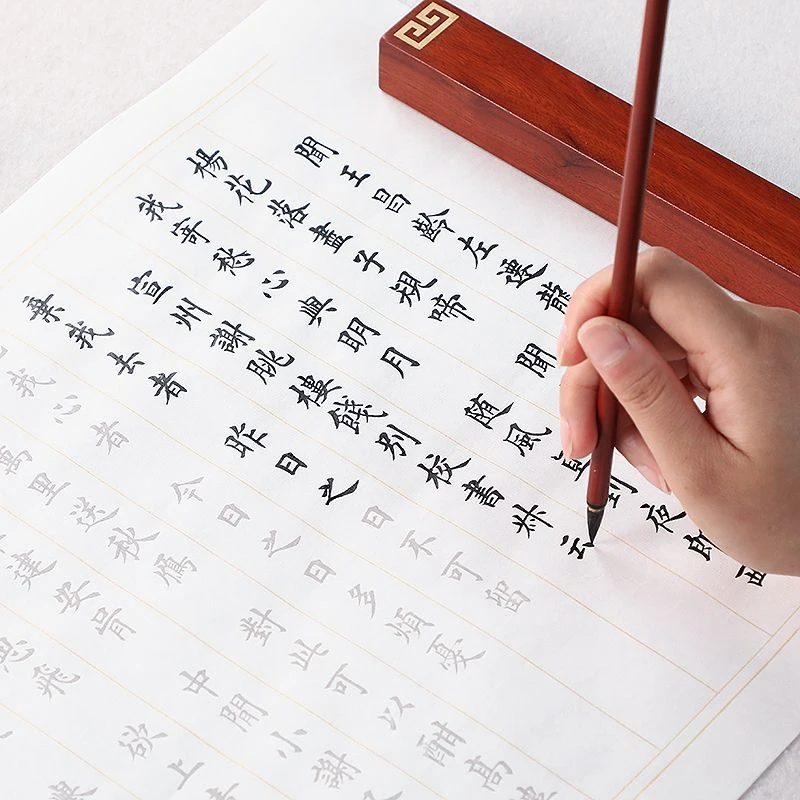 聞王昌齡左遷龍
楊花落盡子規啼聞
我寄愁心與明月隨風直到夜郎西
宣州謝朓樓餞別校書叔云
棄我去者昨日之日不可留
我心者今日之日多煩憂
萬里送秋鴈對此可以酣高
建安骨中間小謝
思飛欲上